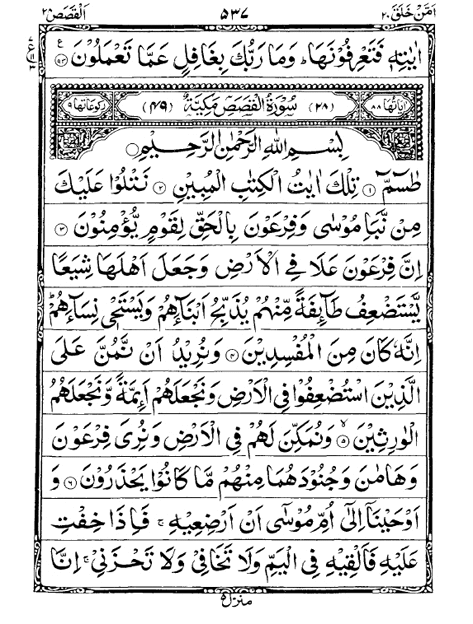 امّن خلق ٢٠ ٥٣٧ القصص ٢٨
اٰيٰتِهٖ فَتَعْرِفُوْنَهَا ؕ وَمَا رَبُّكَ بِغَافِلٍ عَمَّا تَعْمَلُوْنَ ﴿٩٣﴾
اٰيَاتُهَا ٨٨ (٢٨) سُوْرَةُ الْقَصَصِ مَكِّيَّةٌ (٤٩) رُكُوْعَاتُهَا ٩
بِسْمِ اللهِ الرَّحْمٰنِ الرَّحِيْمِ
طٰسٓمّٓ ﴿١﴾ تِلْكَ اٰيٰتُ الْكِتٰبِ الْمُبِيْنِ ﴿٢﴾ نَتْلُوْا عَلَيْكَ
مِنْ نَّبَاِ مُوْسٰى وَفِرْعَوْنَ بِالْحَقِّ لِقَوْمٍ يُّؤْمِنُوْنَ ﴿٣﴾
اِنَّ فِرْعَوْنَ عَلَا فِى الْاَرْضِ وَجَعَلَ اَهْلَهَا شِيَعًا
يَّسْتَضْعِفُ طَآئِفَةً مِّنْهُمْ يُذَبِّحُ اَبْنَآءَهُمْ وَيَسْتَحْىٖ نِسَآءَهُمْ ؕ
اِنَّهٗ كَانَ مِنَ الْمُفْسِدِيْنَ ﴿٤﴾ وَنُرِيْدُ اَنْ نَّمُنَّ عَلَى
الَّذِيْنَ اسْتُضْعِفُوْا فِى الْاَرْضِ وَنَجْعَلَهُمْ اَئِمَّةً وَّنَجْعَلَهُمُ
الْوٰرِثِيْنَ ﴿٥﴾ وَنُمَكِّنَ لَهُمْ فِى الْاَرْضِ وَنُرِىَ فِرْعَوْنَ
وَهَامٰنَ وَجُنُوْدَهُمَا مِنْهُمْ مَّا كَانُوْا يَحْذَرُوْنَ ﴿٦﴾ وَ
اَوْحَيْنَآ اِلٰٓى اُمِّ مُوْسٰٓى اَنْ اَرْضِعِيْهِ ۚ فَاِذَا خِفْتِ
عَلَيْهِ فَاَلْقِيْهِ فِى الْيَمِّ وَلَا تَخَافِىْ وَلَا تَحْزَنِىْ ۚ اِنَّا
منزل ٥